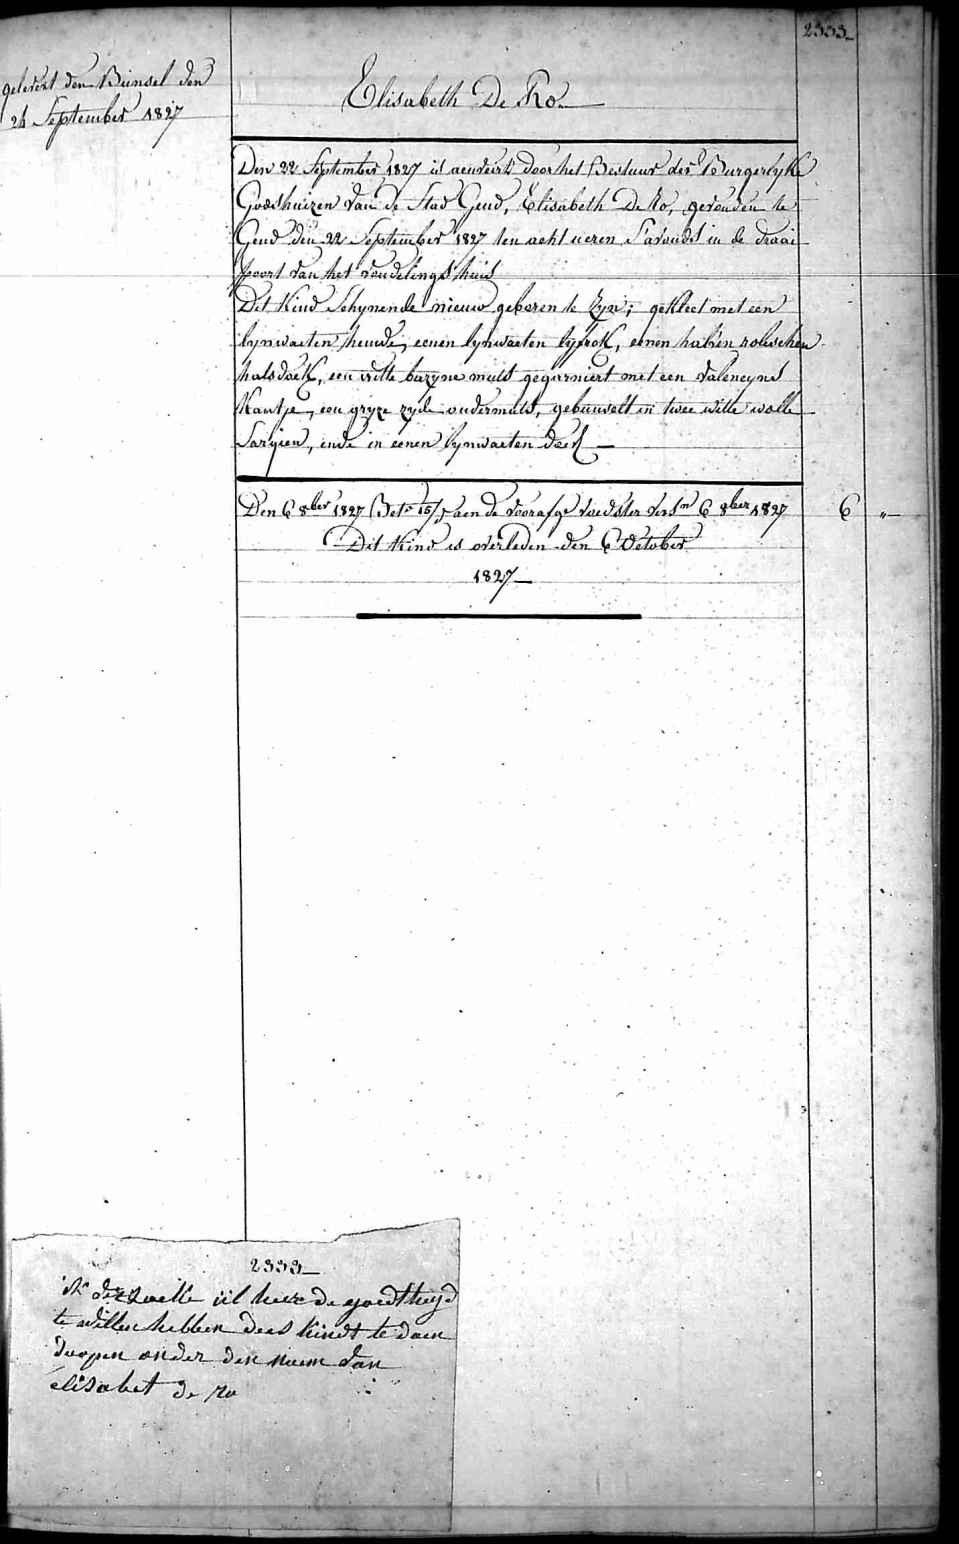 2333_
gelevert den Bunsel den
24 September 1827
Elisabeth De Ro
Den 22 September 1827 is aenveirt door het Bestuur der Burgerlyke
Godshuizen van de Stad Gend, Elisabeth De Ro, gevonden te
Gend den 22 September 1827 ten acht ueren S'avonds in de draai
poort van het vondelings huis
Dit Kind Schynende nieuw geboren te Zyn; gekleet met een
lynwaeten hemde, eenen lynwaeten lyfrok, eenen halven
halsdoek, een witte bazyne muts gegarniert met een valencyns
Kantje, een gryze zyde ondermuts, gebunselt in twee witte wolle
Sargien, ende in eenen lynwaeten doek
Den 6 8ber 1827 Bet. 15/ aen de voorafge voedster 6 8ber 1827 6 "
Dit Kind is overleden den 6 October
1827
2333_
te willen hebben dees kindt te doen
doopen onder den naem van
elisabet de ro